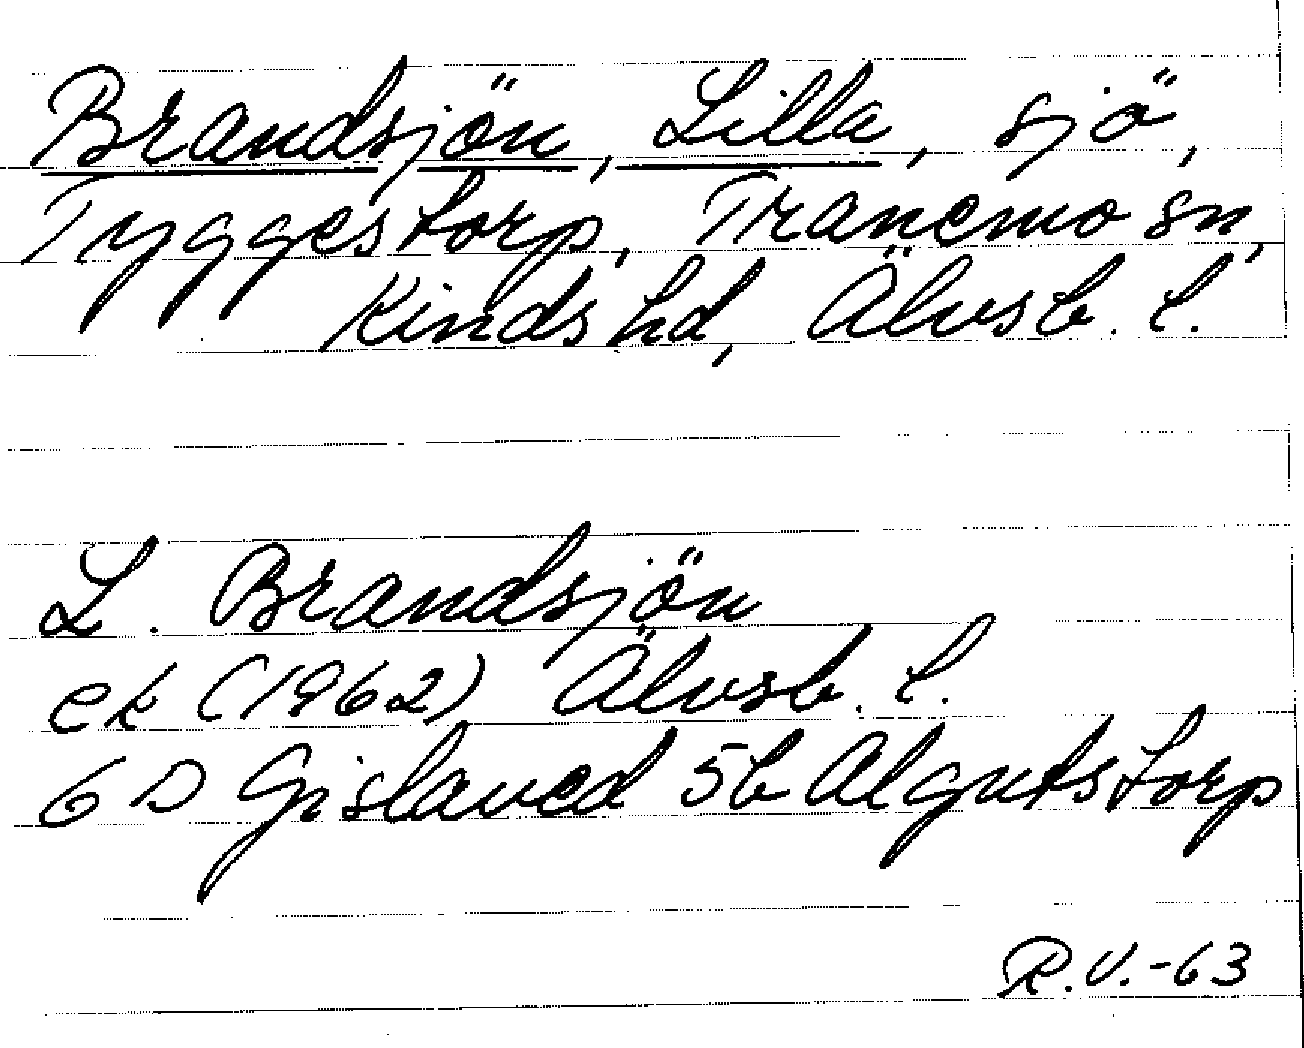 Brandsjön, Lilla, sjö,
Tyggestorp, Tranemo sn,
Kinds hd, Älvsb. l.
L. Brandsjön
ek (1962) Älvsb. l.
6 D Gislaved 5b Algutstorp
R.V.-63